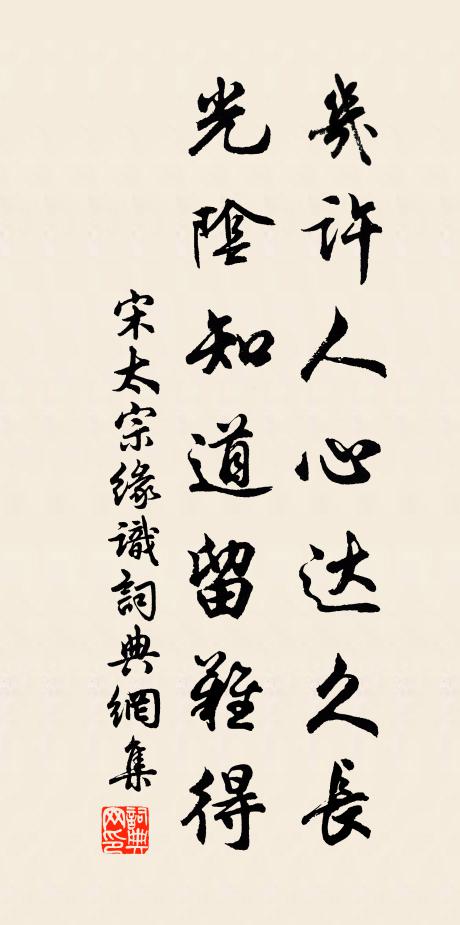 幾許人心达久長
光陰知道留難得
宋太宗緣識詞典網集
詞典网印